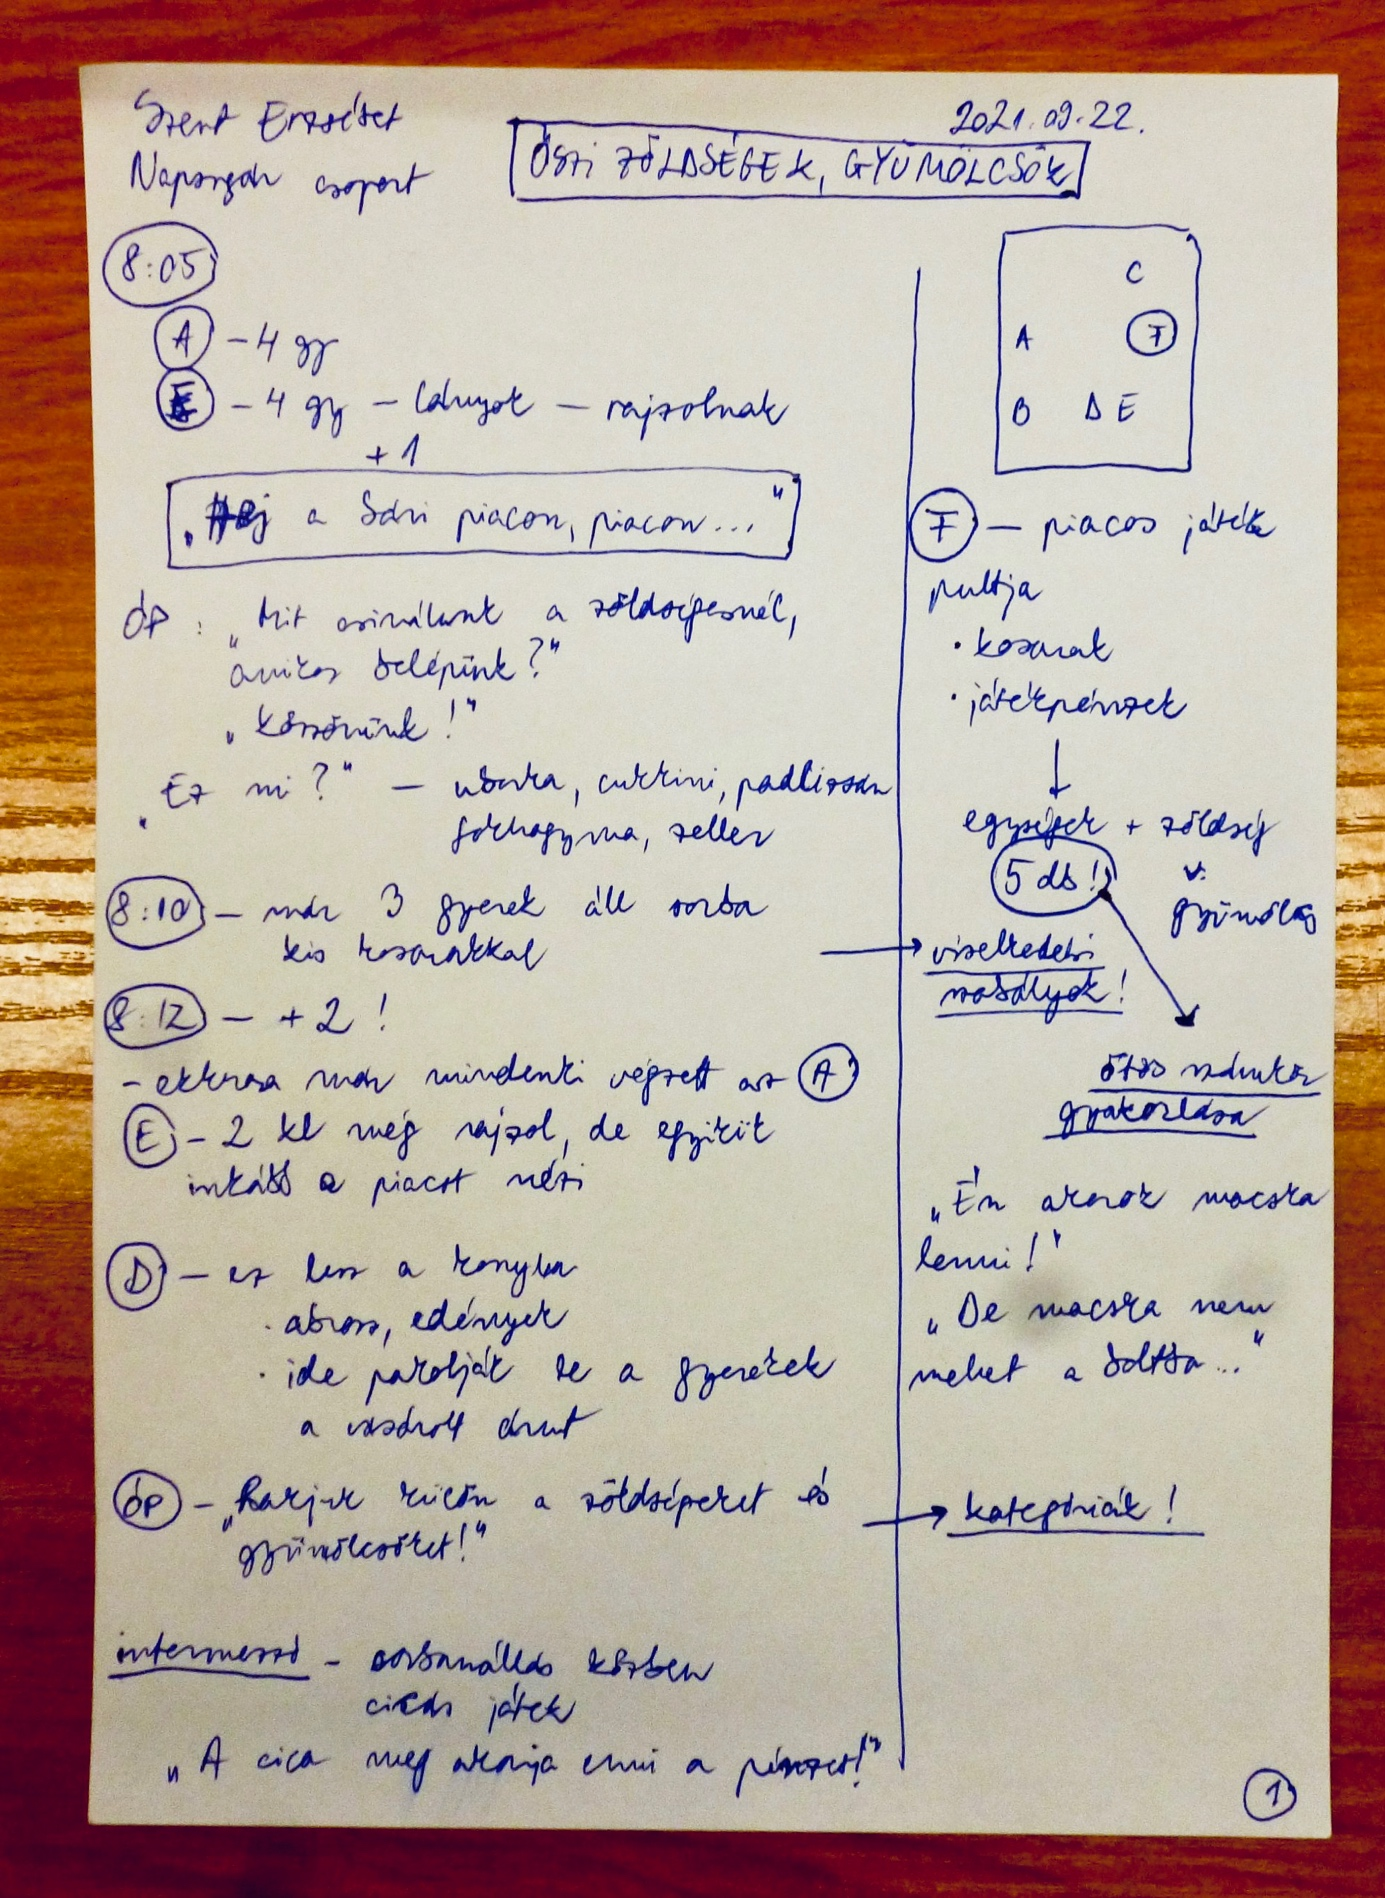 Szent Erzsébet
Napsugár csoport
2021.09.22.
ŐSZI ZÖLDSÉGEK, GYÜMÖLCSÖK
8:05
A - 4 gy
E - 4 gy - lányok - rajzolnak
+ 1
„Hej a bdri piacon, piacon..."
ÓP: „Mit csinálunk a zöldségesnél,
amikor belépünk?"
„Köszönünk!"
„Ez mi?" - uborka, cukkini, padlizsán
fokhagyma, zeller
8:10 - már 3 gyerek áll sorba
kis kosarakkal
8:12 - +2 !
- ekkora már mindenki végzett az A
E - 2 kl még rajzol, de egyikük
inkább a piacot nézi
D - ez lesz a konyha
· abrosz, edények
· ide pakolják be a gyerekek
a vásárolt árut
ÓP - „Rakjuk külön a zöldségeket és
gyümölcsöket!"
intermezzó - sorbanállás közben
cicás játék
„A cica meg akarja enni a pénzet!"
C
A F
B D E
F - piacos játék
pultja
· kosarak
· játékpénzek
egységek + zöldség
5 db! v.
gyümölcs
viselkedési
szabályok!
ötös számkör
gyakorlása
„Én akarok macska
lenni!"
„De macska nem
mehet a boltba..."
kategóriák!
1